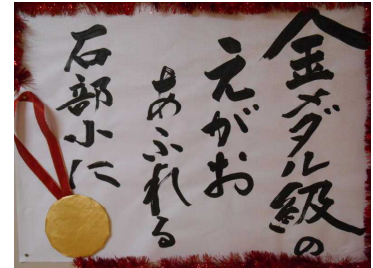 金メダル級の
えがお
あふれる
石部小に